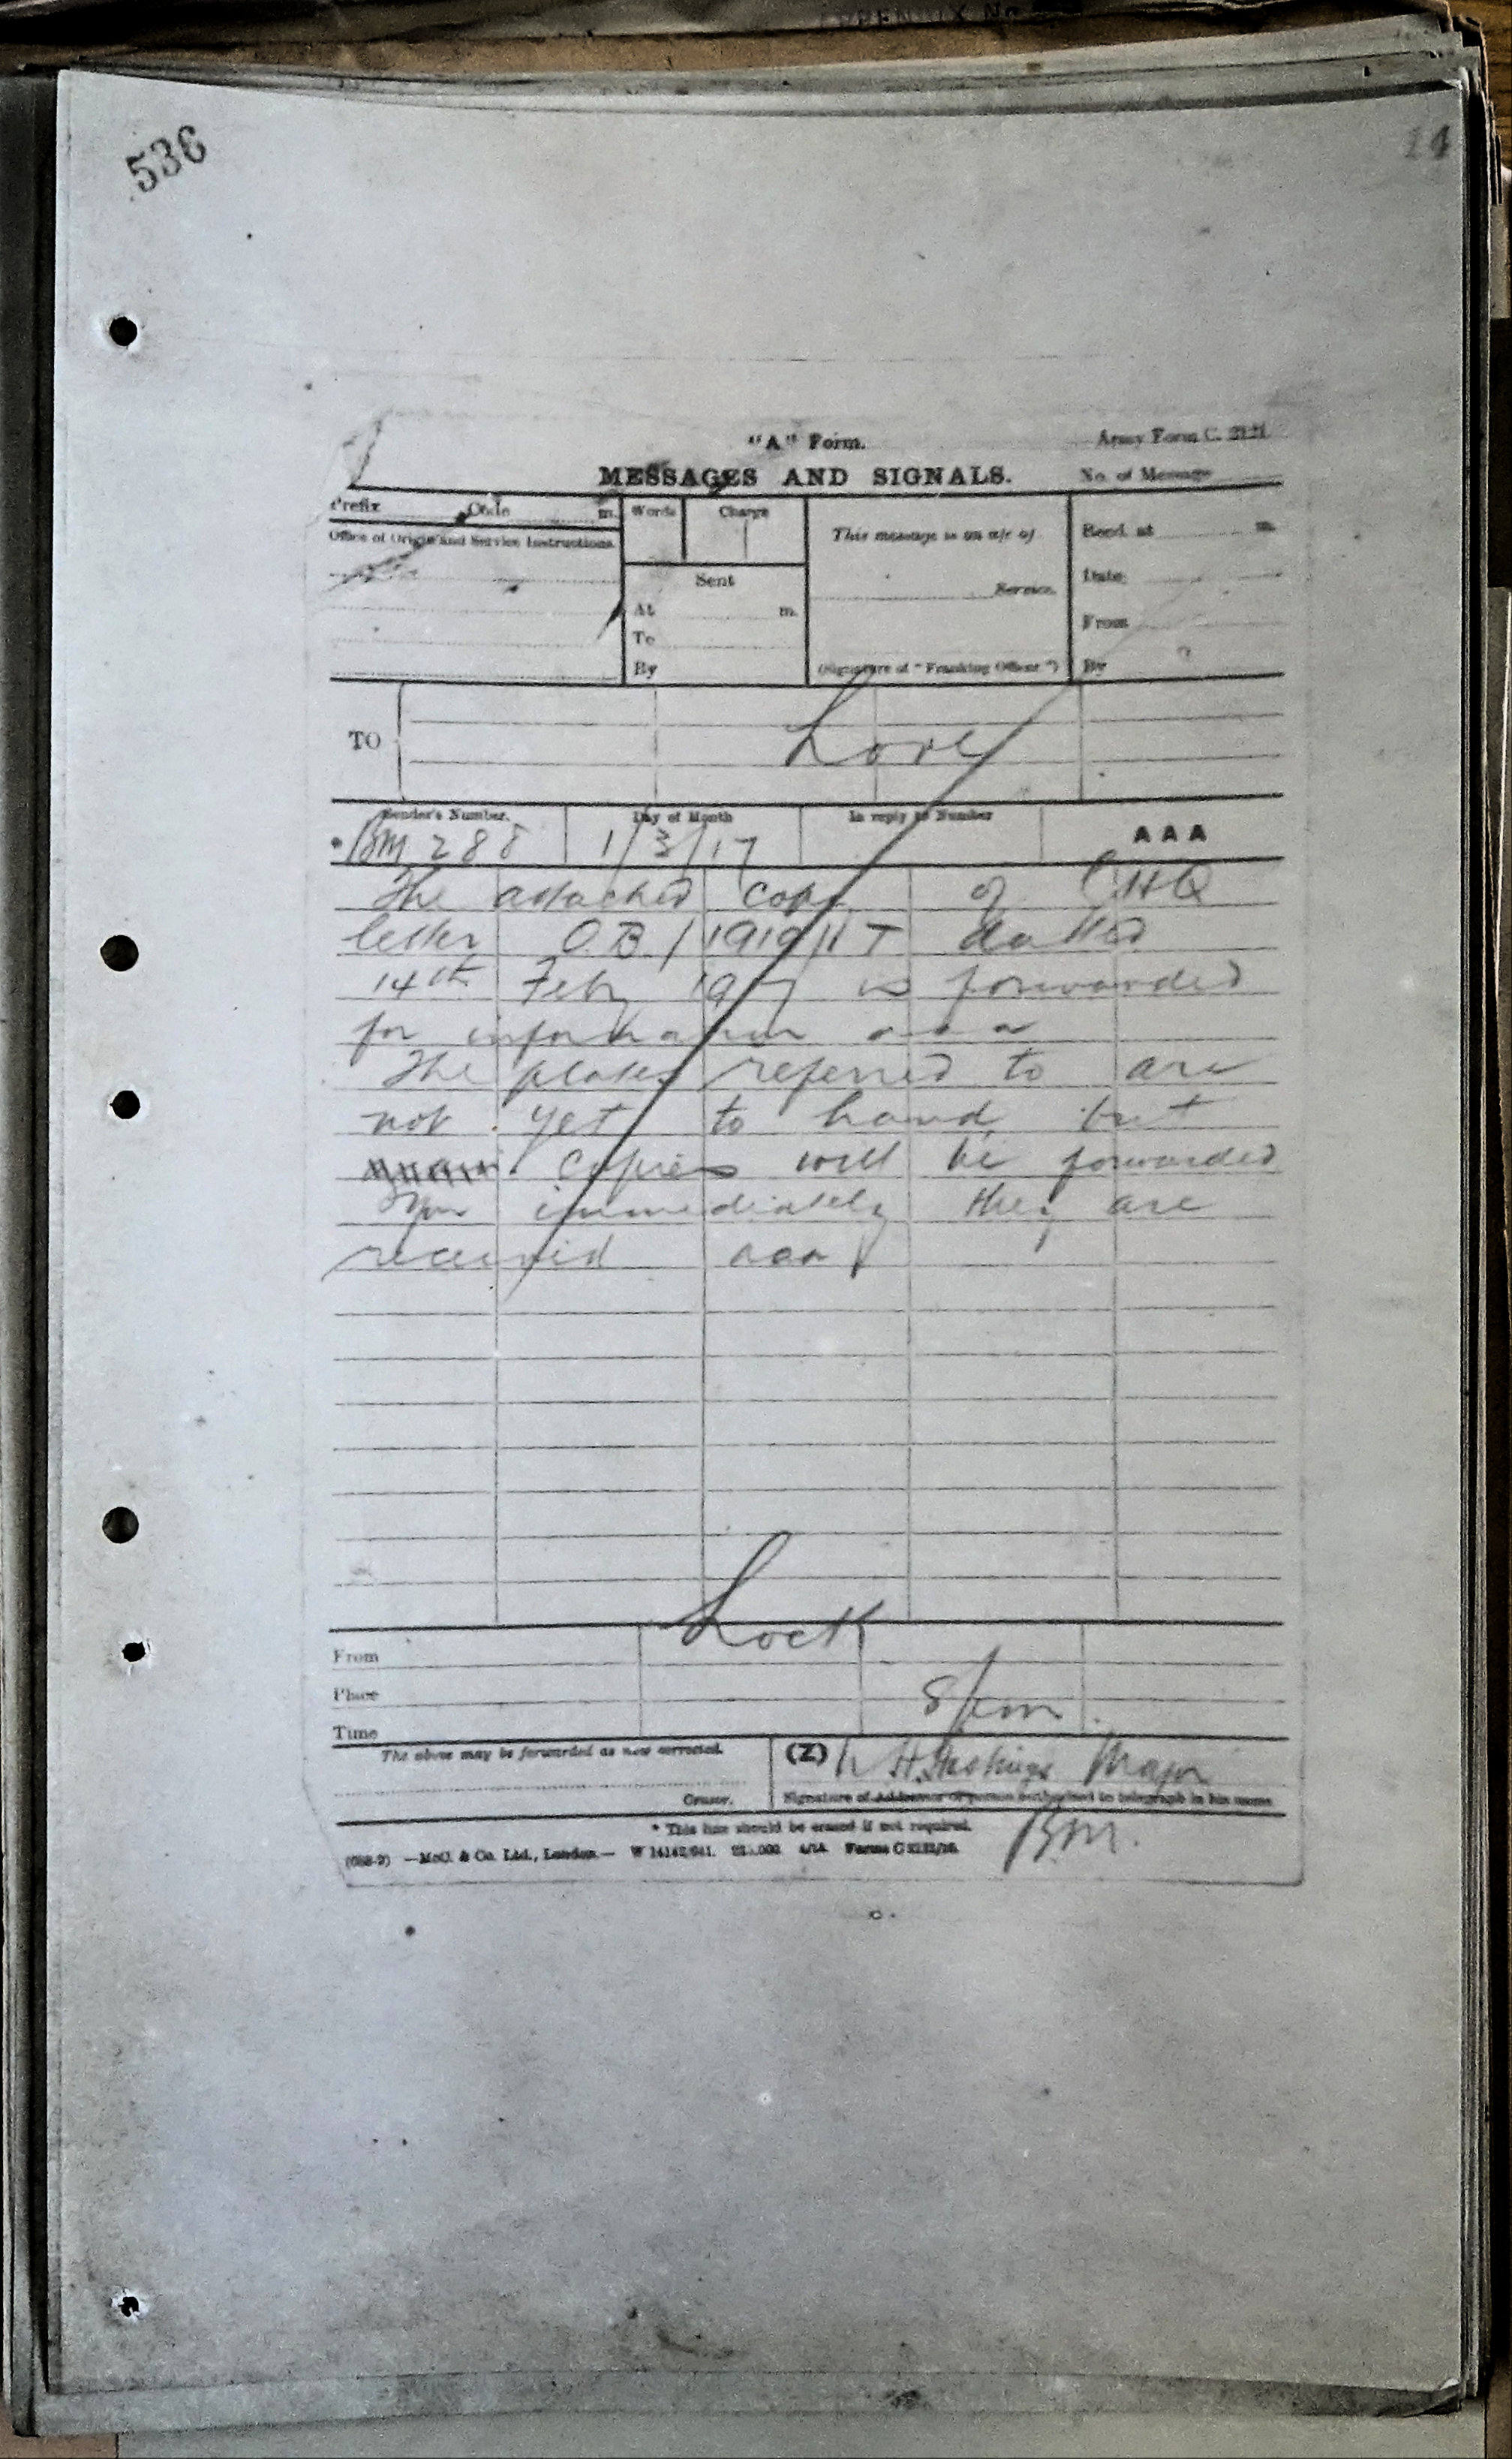 536
14
"A" Form.
Army Form C. 2121
MESSAGES AND SIGNALS.
No. of Message
Prefix Code m.
Words Charge
This message is on a/c of
Recd. at m.
Office of Origin and Service Instructions.
Sent
Date
Service.
At m.
From
To
By
(Signature of "Franking Officer")
By
TO
Love
Sender's Number.
Day of Month
In reply to Number
AAA
* BM 288
1/3/17
The attached copy of GHQ
letter O.B./1919/T datted
14th Feby 1917 is forwarded
for information aaa
The plates referred to are
not yet to hand but
copies will be forwarded
you immediately they are
received aaa
Lock
From
Place
8 pm.
Time
The above may be forwarded as now corrected.
(Z)
Major
Censor.
Signature of Addressor or person authorised to telegraph in his name
* This line should be erased if not required.
BM.
—McC. & Co. Ltd., London.—